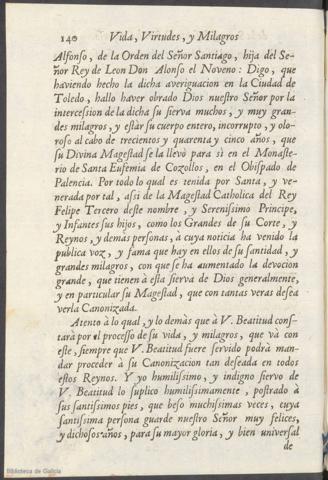 140 Vida, Virtudes, y Milagros
Alfonso, de la Orden del Señor Santiago, hija del Se-
ñor Rey de Leon Don Alonso el Noveno: Digo, que
haviendo hecho la dicha averiguacion en la Ciudad de
Toledo, hallo haver obrado Dios nuestro Señor por la
intercession de la dicha su sierva muchos, y muy gran-
des milagros, y estàr su cuerpo entero, incorrupto, y olo-
roso al cabo de trecientos y quarenta y cinco años, que
su Divina Magestad se la llevò para sì en el Monaste-
rio de Santa Eufemia de Cozollos, en el Obispado de
Palencia. Por todo lo qual es tenida por Santa, y ve-
nerada por tal, assi de la Magestad Catholica del Rey
Felipe Tercero deste nombre, y Serenissimo Principe,
y Infantes sus hijos, como los Grandes de su Corte, y
Reynos, y demàs personas, à cuya noticia ha venido la
publica voz, y fama que hay en ellos de su santidad, y
grandes milagros, con que se ha aumentado la devocion
grande, que tienen à esta sierva de Dios generalmente,
y en particular su Magestad, que con tantas veras desea
verla Canonizada.
Atento à lo qual, y lo demàs que à V. Beatitud cons-
tarà por el processo de su vida, y milagros, que và con
este, siempre que V. Beatitud fuere servido podrà man-
dar proceder à su Canonizacion tan deseada en todos
estos Reynos. Y yo humilissimo, y indigno siervo de
V. Beatitud lo suplico humilissimamente, postrado à
sus santissimos pies, que beso muchissimas veces, cuya
santissima persona guarde nuestro Señor muy felices,
y dichosos años, para su mayor gloria, y bien universal
de
Biblioteca de Galicia